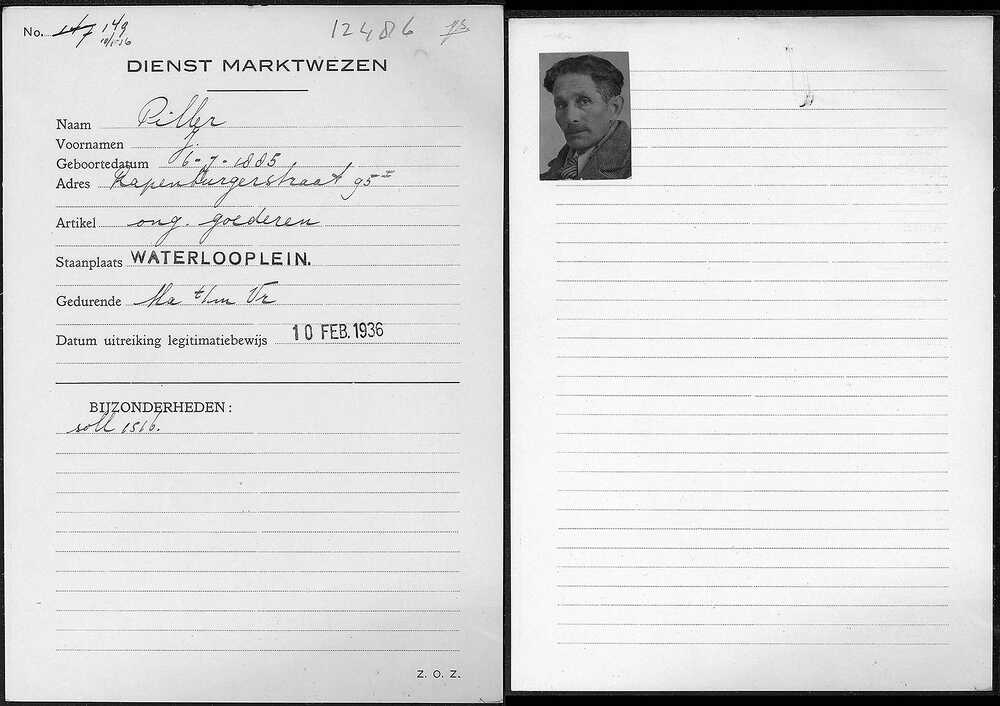 No. 149
12486
DIENST MARKTWEZEN
Naam Piller
Voornamen J.
Geboortedatum 6-7-1885
Adres Rapenburgerstraat 95 I
Artikel ong. goederen
Staanplaats WATERLOOPLEIN.
Gedurende Ma t/m Vr
Datum uitreiking legitimatiebewijs 10 FEB. 1936
BIJZONDERHEDEN:
soll 1516.
Z. O. Z.